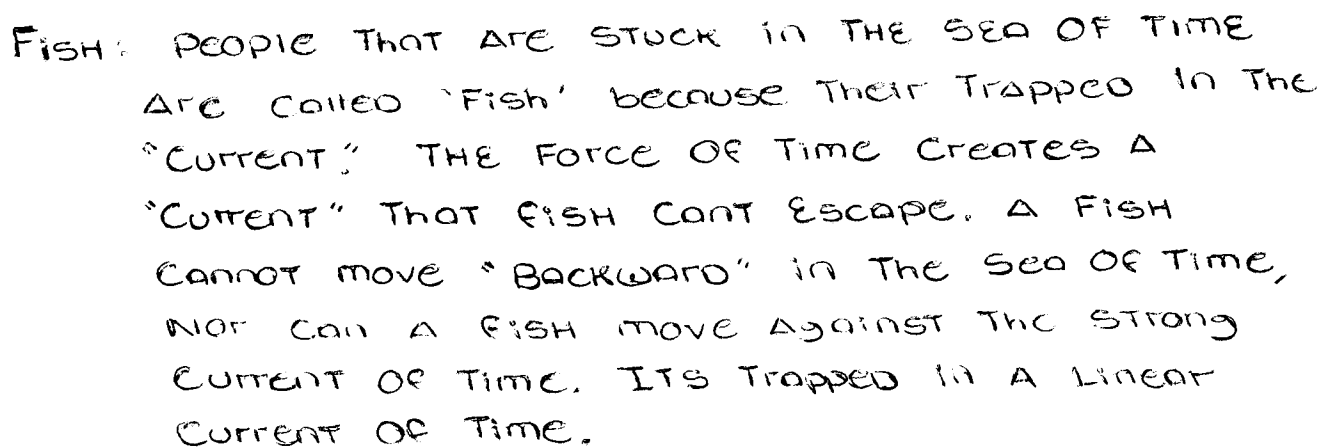 FISH: PEOPLE THAT ARE STUCK in THE SEA OF TIME
Are Called 'Fish' because Their Trapped In The
"Current." THE Force OF Time Creates A
"Current" That FISH Cant Escape. A FISH
Cannot move "BACKWARD" in The Sea OF Time,
Nor Can A FISH move Against The Strong
Current OF Time. ITS Trapped in A Linear
Current OF Time.